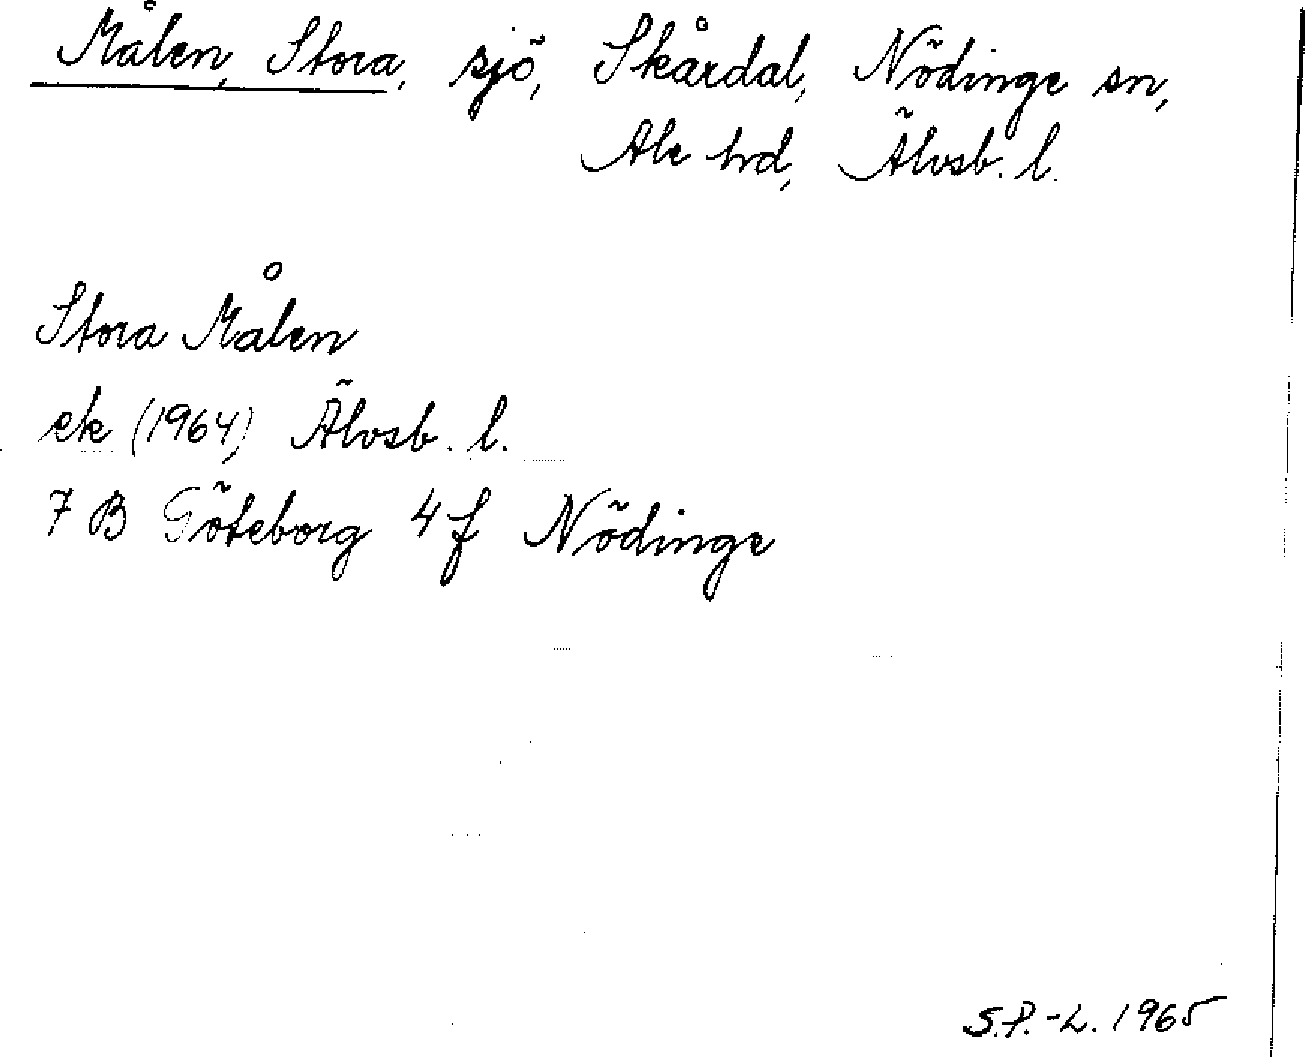 Målen, Stora, sjö, Skårdal, Nödinge sn,
Ale hd, Älvsb. l.
Stora Målen
ek (1964) Älvsb. l.
7 B Göteborg 4 f Nödinge
S.P.-L. 1965